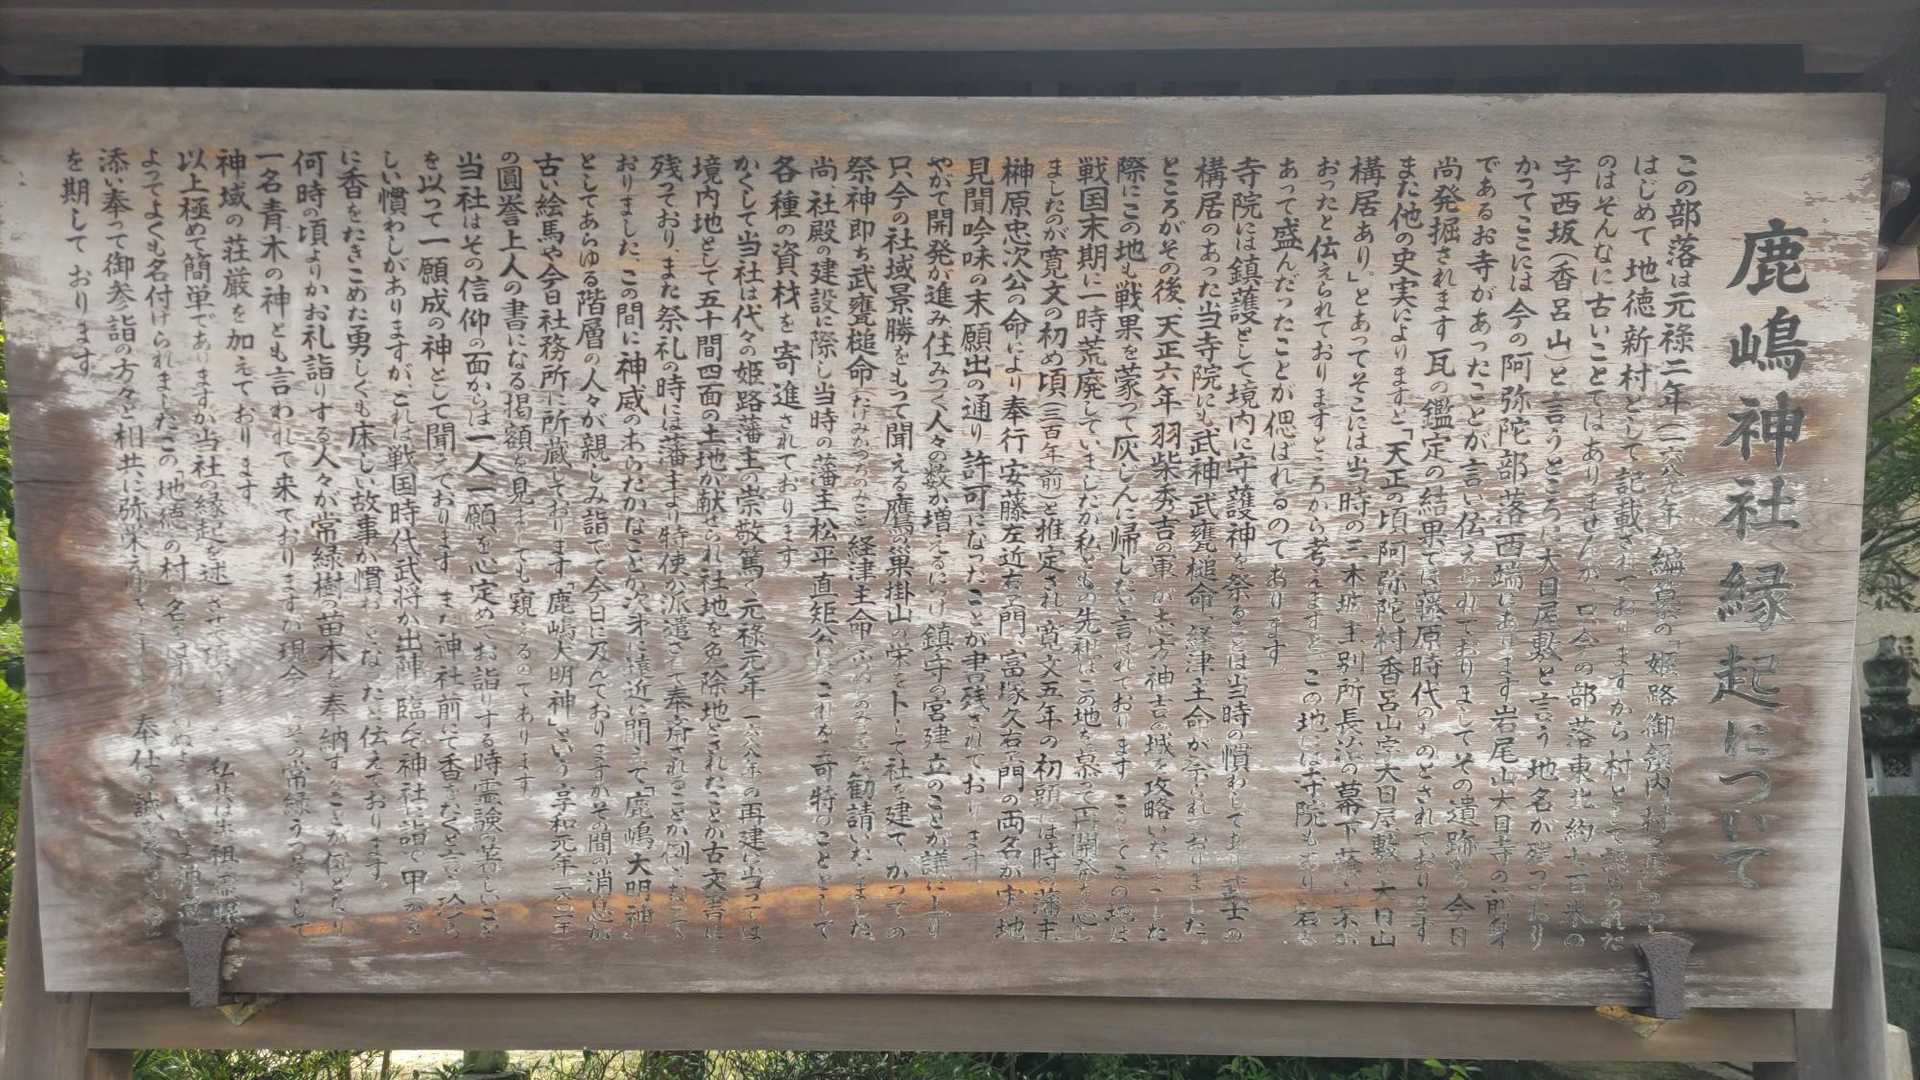 鹿嶋神社縁起について
この部落は元禄二年(一六八九年)編纂の「姫路御領内
はじめて地徳新村として記載されておりますから村として
のはそんなに古いことではありませんが、只今の部落東北約
字西坂(香呂山)と言うところに大日屋敷と言う地名が残っており
かつてここには今の阿弥陀部落西端にあります岩尾山大日寺の前身
であるお寺があったことが言い伝えられておりましてその遺跡から今日
尚発掘されます瓦の鑑定の結果では藤原時代のものとされております
また他の史実によりますと「天正の頃阿弥陀村香呂山字大日屋敷に大日山
構居あり」とあってそこには当時の三木城主別所長治の幕下
おったと伝えられておりますところから考えますと、この地には寺院もあり
あって盛んだったことが偲ばれるのであります
寺院には鎮護として境内に守護神を祭ることは当時の慣わしであり武士の
構居のあった当寺院にも武神武甕槌命、経津主命が祭られておりました
ところがその後、天正六年羽柴秀吉の軍が志方神吉の城を攻略いたしました
際にこの地も戦果を蒙って灰じんに帰したと言われております こうしてこの地は
戦国末期に一時荒廃していましたが私どもの先祖はこの地を慕って再開発を志し
ましたのが寛文の初め頃(三百年前)と推定され、寛文五年の初頭には時の藩主
榊原忠次公の命により奉行安藤左近右ェ門、富塚久右ェ門の両名が実地
見聞吟味の末願出の通り許可になったことが書残されております
やがて開発が進み住みつく人々の数が増えるにつけ鎮守の宮建立のことが議にのぼり
只、今の社域景勝をもって聞える鷹の巣掛山の栄をトして社を建て かつての
祭神即ち武甕槌命(たけみかづちのみこと)経津主命(ふつぬしのみこと)を勧請いたしました
尚、社殿の建設に際し当時の藩主松平直矩公は これを奇特のこととして
各種の資材を寄進されております
かくして当社は代々の姫路藩主の崇敬篤く元禄元年(一六八八年)の再建に当っては
境内地として五十間四面の土地が献ぜられ社地を免除地とされたことが古文書に
残っており、また祭礼の時には藩主より特使が派遣されて奉斎されることが例となって
おりました、この間に神威のあらたかなことが次才に遠近に聞えて「鹿嶋大明神」
としてあらゆる階層の人々が親しみ詣でて今日に及んでおりますがその間の消息が
古い絵馬や今日社務所に所蔵しております「鹿嶋大明神」という享和元年(一八〇一年)
の圓誉上人の書になる掲額を見ましても窺えるのであります
当社はその信仰の面からは一人一願を心定めてお詣りする時霊験は著しいこと
を以って一願成の神として聞えております また神社前にて香をたくと言う珍ら
しい慣わしがありますが、これは戦国時代武将が出陣に臨んで神社に詣で甲かぶと
に香をたきこめた勇しくも床しい故事が慣わしとなったと伝えております。
何時の頃よりかお礼詣りする人々が常緑樹の苗木を奉納することが例となり
一名青木の神とも言われて来ておりますが現今 その常緑うっそうとして
神域の荘厳を加えております
以上極めて簡単でありますが当社の縁起を述べさせて頂きました 私共は先祖
よってよくも名付けられましたこの地徳の村
添い奉って御参詣の方々と相共に弥栄え 奉仕の誠
を期して おります